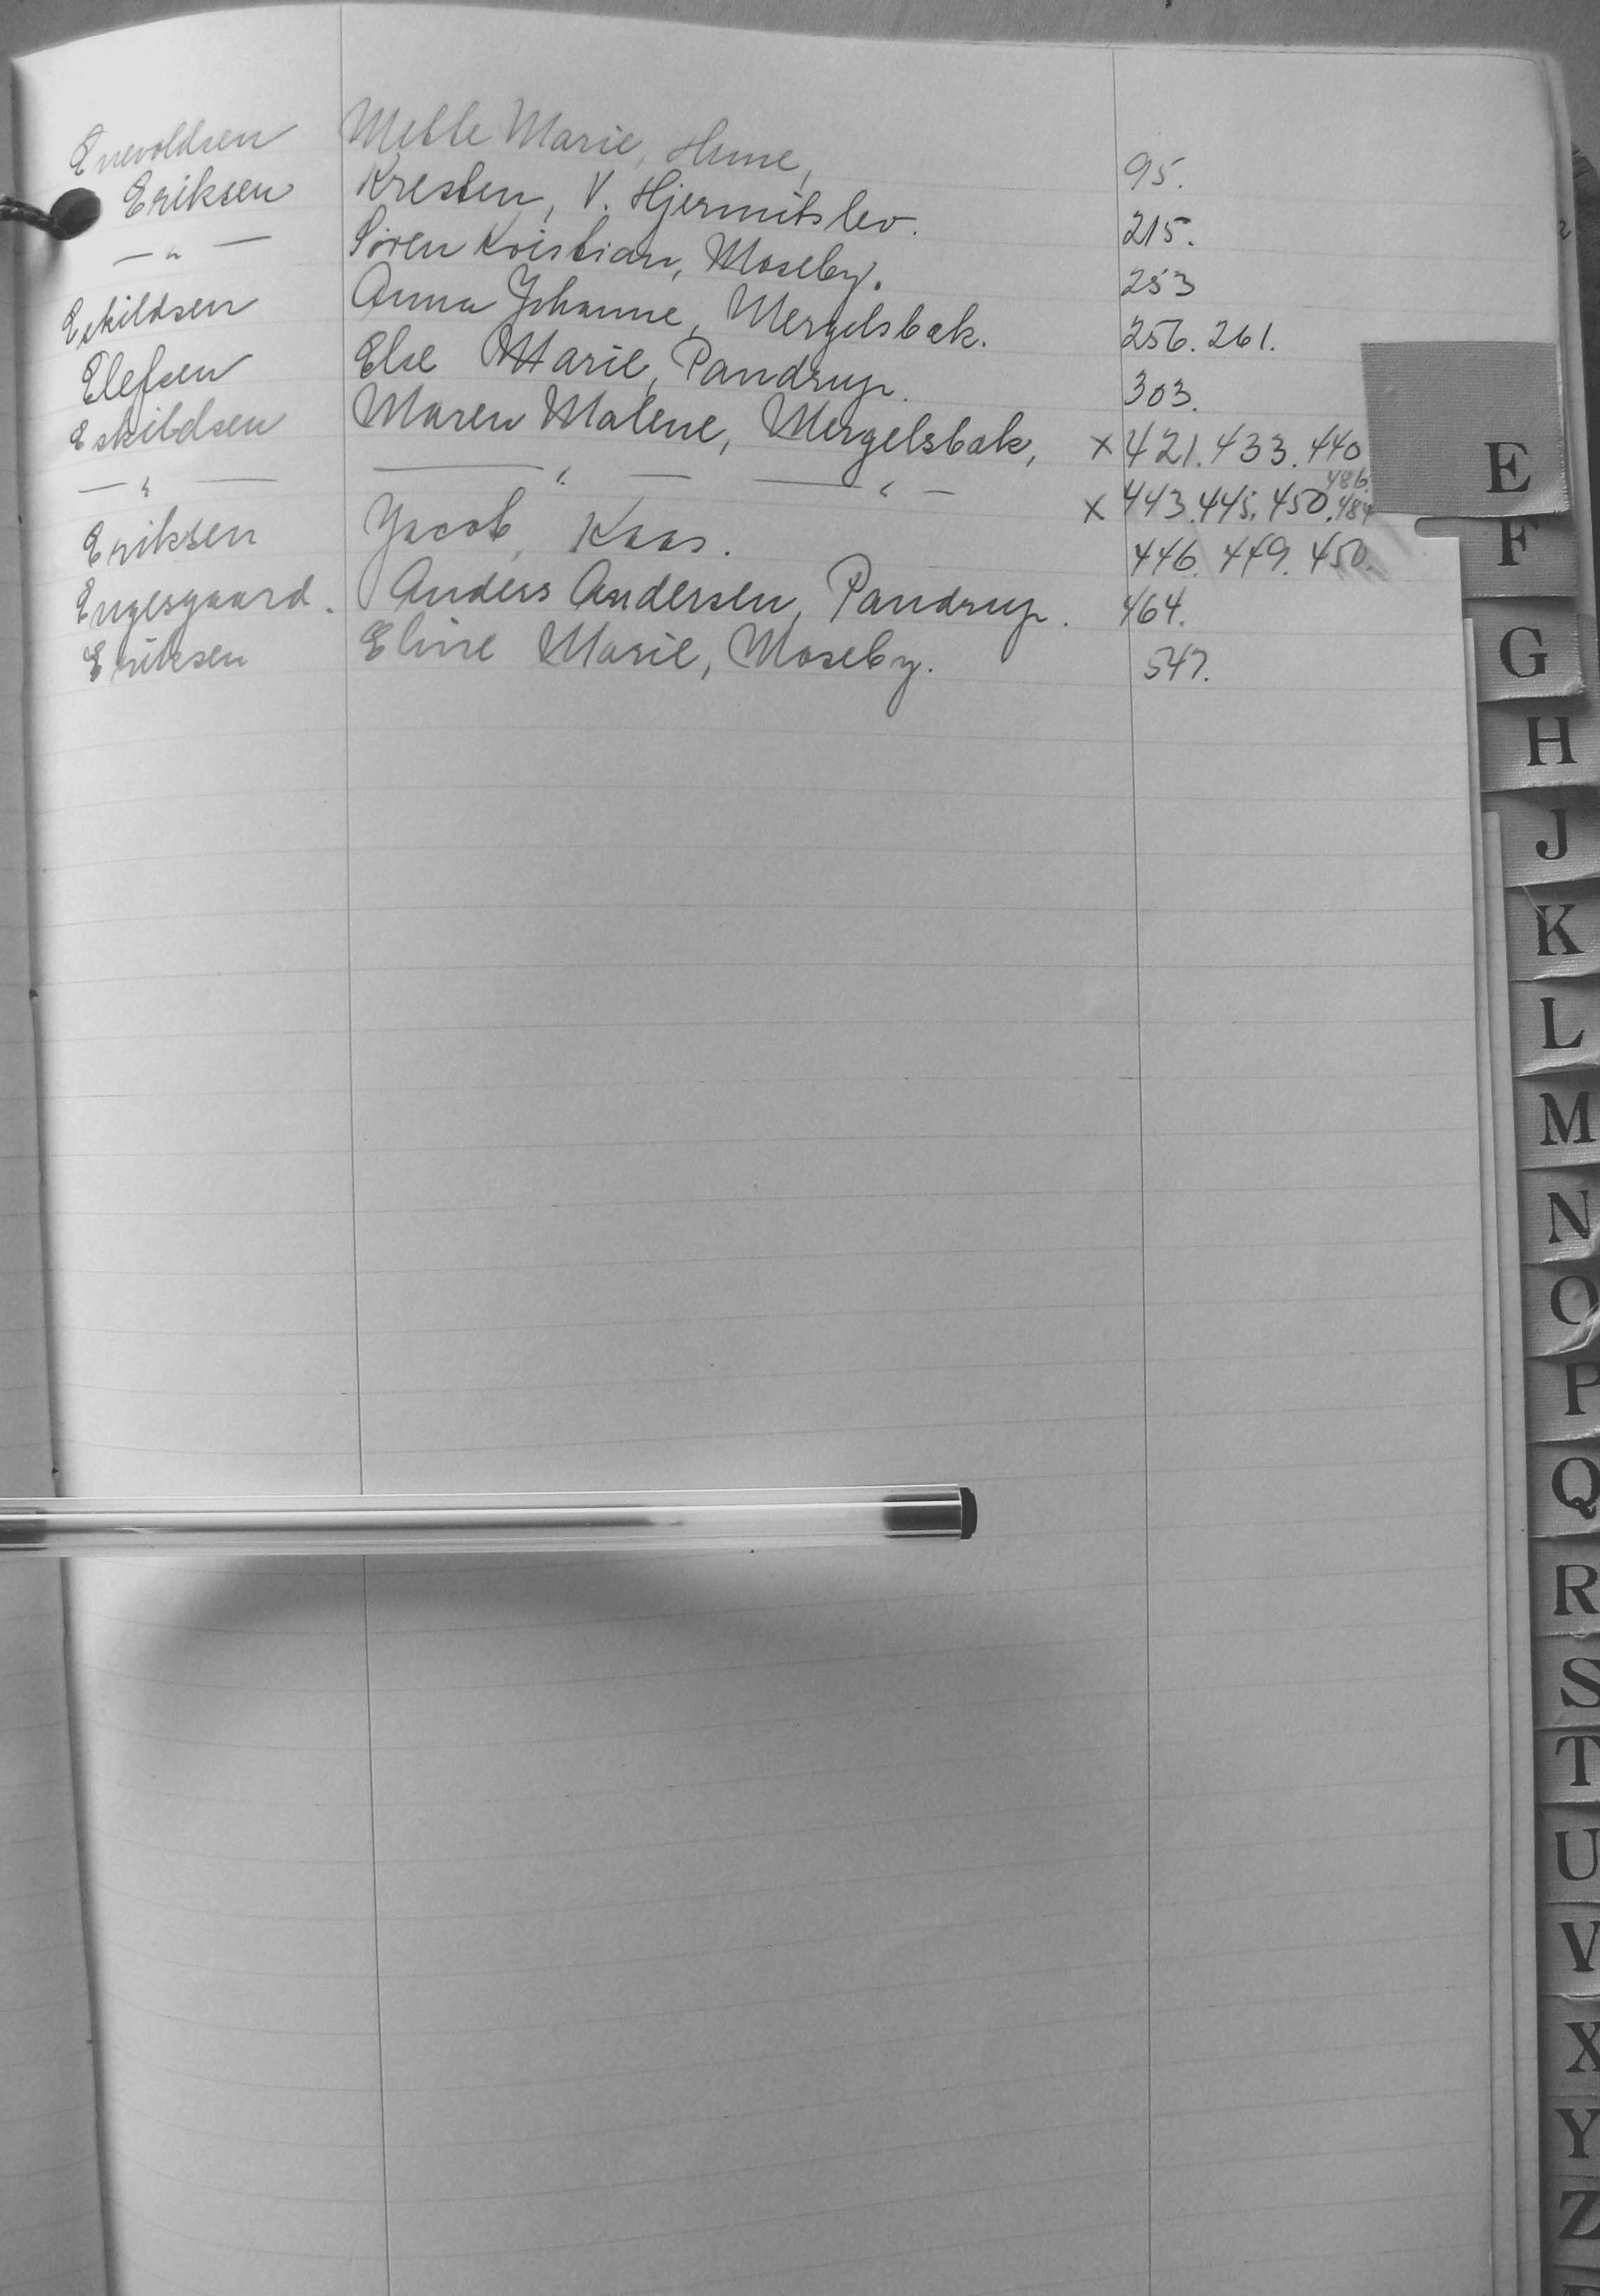 Enevoldsen Mette Marie, Hune, 95.
Eriksen Kresten, V. Hjermitslev. 215.
— " — Sören Kristian, Moseby. 253
Eskildsen Anna Johanne, Mergelsbak. 256. 261.
Elefsen Else Marie, Pandrup. 303.
Eskildsen Maren Malene, Mergelsbak, x 421. 433. 440
486.
— " — — " — — " — x 443. 445. 450. 484
Eriksen Jacob, Kaas. 446. 449. 450.
Engesgaard. Anders Andersen, Pandrup. 464.
Eriksen Eline Marie, Moseby. 547.
E
F
G
H
J
K
L
M
N
O
P
Q
R
S
T
U
V
X
Y
Z